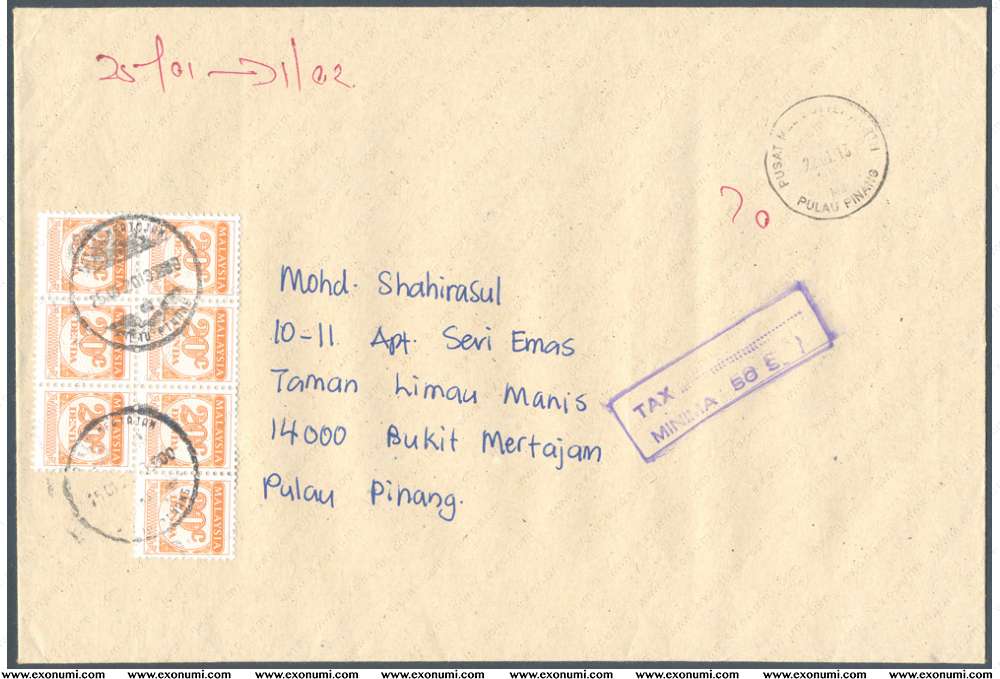 25/01 → 31/02
PUSAT MEL
PULAU PINANG
70
MALAYSIA 20c DENDA
MALAYSIA 20c DENDA
MALAYSIA 20c DENDA
MALAYSIA 20c DENDA
MALAYSIA 20c DENDA
MALAYSIA 20c DENDA
MALAYSIA 20c
Mohd. Shahirasul
10-11 Apt. Seri Emas
Taman Limau Manis
14000 Bukit Mertajam
Pulau Pinang.
TAX
MINIMA 58 S.
www.exonumi.com www.exonumi.com www.exonumi.com www.exonumi.com www.exonumi.com www.exonumi.com www.exonumi.com www.exonumi.com